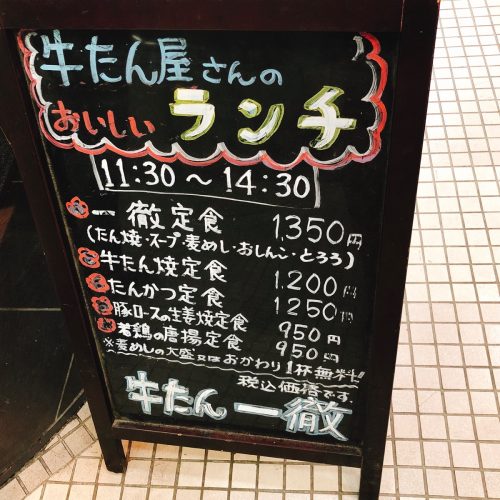 牛たん屋さんの
おいしいランチ
11:30～14:30
一徹定食 1,350円
(たん焼・スープ・麦めし・おしんこ・とろろ)
牛たん焼定食 1,200円
たんかつ定食 1250円
豚ロースの生姜焼定食 950円
若鶏の唐揚定食 950円
※麦めしの大盛又はおかわり1杯無料!!
税込価格です。
牛たん一徹